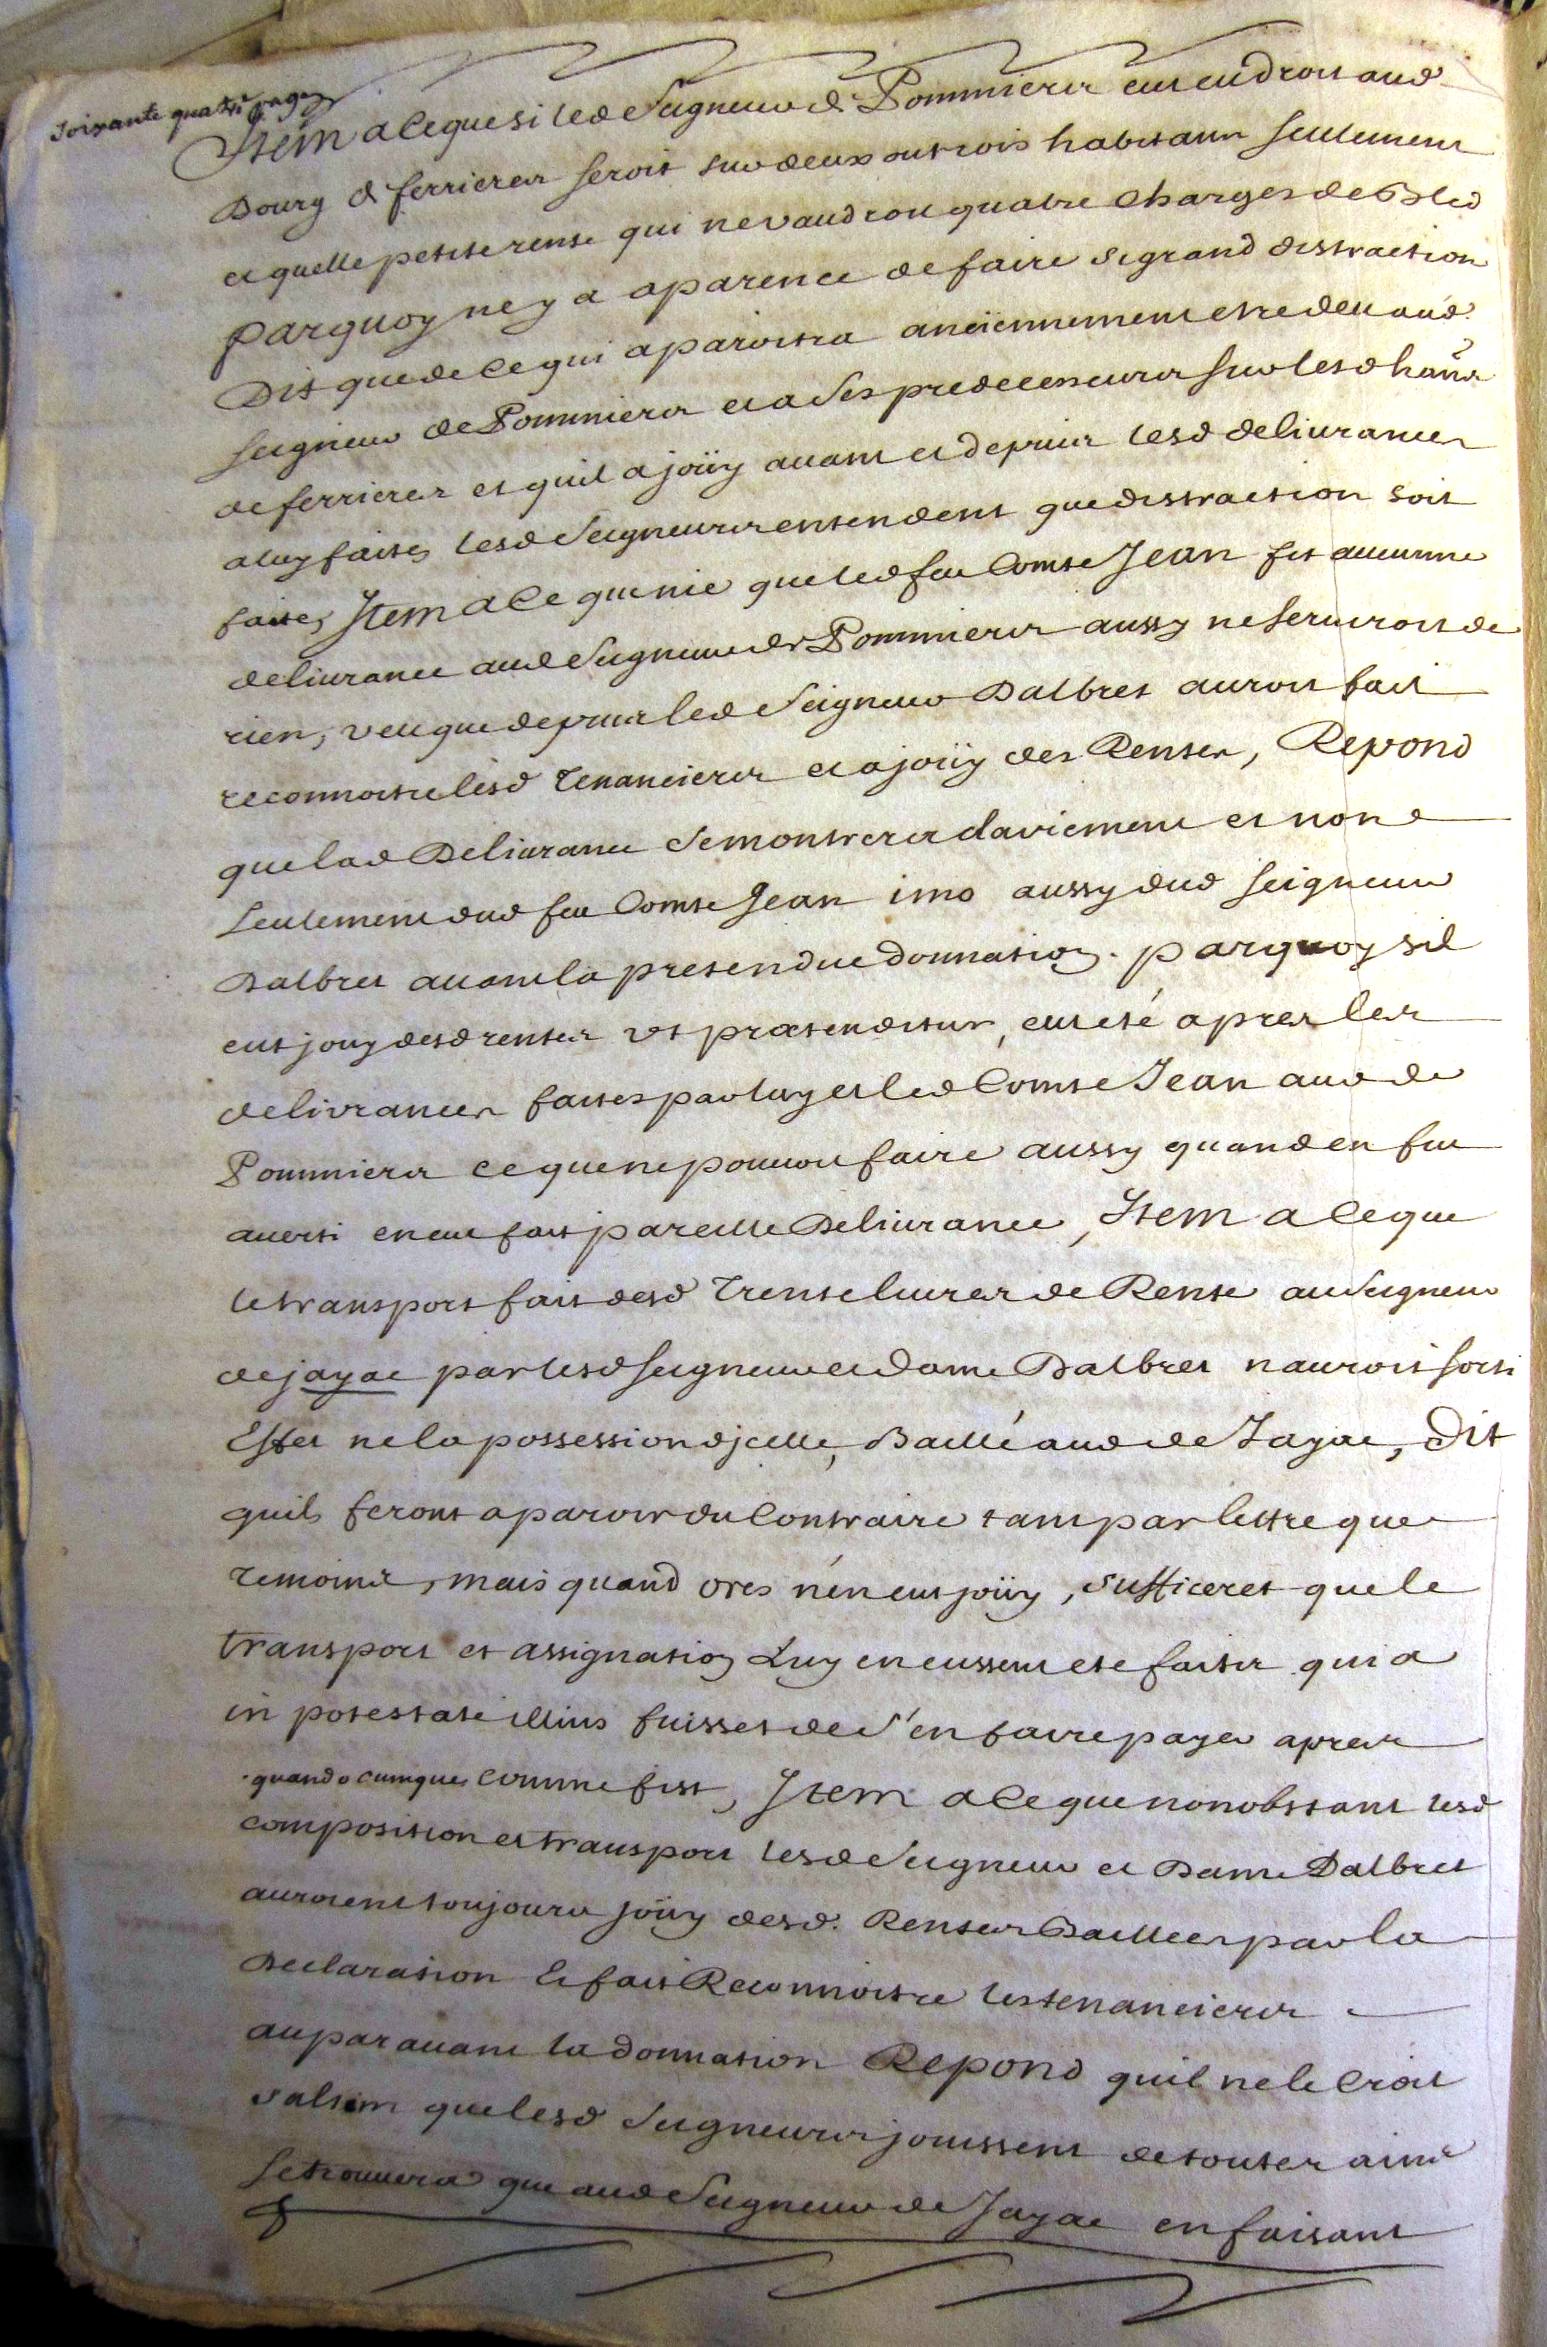 soixante quatre pages
Item a ce que si led Seigneur de Pommiers eut endroit aud
Bourg de ferrieres seroit sur deux ou trois habitans seulement
et quelle petite rente qui ne vaudroit quatre Charges de Bled
parquoy ne y a aparence de faire si grand distraction
Dit que de ce qui aparoitra anciennement etre deu aud.
Seigneur de Pommiers et a Ses predecesseurs sur lesd hañs
de ferrieres et quil a joüy avant et depuis lesd delivrances
a luy faites lesd Seigneurs entendent que distraction soit
faite, Item a ce que nie que led feu Comte Jean fit aucunne
delivrance aud Seigneur de Pommiers aussy ne serviroit de
rien, veu que depuis led Seigneur Dalbret auroit fait
reconnoitre lesd Tenanciers et a joüy des Rentes, Repond
que lad Delivrance Se montrera clairement et non
seulement dud feu Comte Jean imo aussy dud seigneur
Dalbret avant la pretendue donnation. parquoy sil
eut jouy desd rentes vt prætenditur, eut eté apres les
delivrances faites par luy et led Comte Jean aud de
Pommiers ce que ne pouvoit faire aussy quand en fut
averti en eut fait pareille Delivrance, Item a ce que
le transport fait desd Trente livres de Rente au Seigneur
de jayac par lesd seigneur et Dame Dalbret n auroit sorti
Effet ne la possession djcelle, Baillé aud de Jayac, Dit
quils feront aparoir du Contraire tant par lettre que
temoins, mais quand ores n'en eut joüy, sufficeret que le
transport et assignation Luy en eussent eté faites quia
in potestate illius fuisset de S'en faire payer apres
quandocumque comme fist, Item a ce que nonobstant lesd
composition et transport lesd Seigneur et Dame Dalbret
auroient toujours joüy desd. Rentes Baillees par la
Declaration Et fait Reconnoitre les tenanciers
auparavant la donnation Repond quil ne le Croit
saltem que lesd Seigneurs jouissent de toutes ains
se trouvera que aud Seigneur de Jayac en faisant